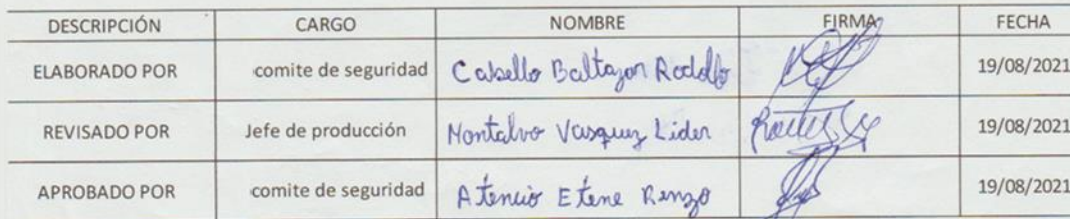 DESCRIPCIÓN CARGO NOMBRE FIRMA FECHA
ELABORADO POR comite de seguridad Cabello Baltazar Rodolfo 19/08/2021
REVISADO POR Jefe de producción Montalvo Vasquez Lider 19/08/2021
APROBADO POR comite de seguridad Atencio Etene Renzo 19/08/2021